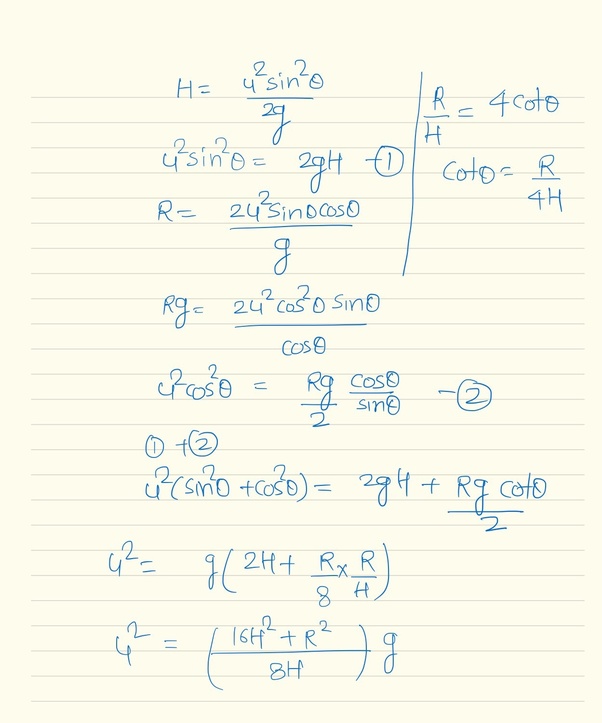 H = u²sin²θ / 2g
u²sin²θ = 2gH - ①
R = 2u²sinθcosθ / g
R/H = 4cotθ
cotθ = R/4H
Rg = 2u²cos²θ sinθ / cosθ
u²cos²θ = Rg/2 cosθ/sinθ - ②
① + ②
u²(sin²θ + cos²θ) = 2gH + Rg cotθ / 2
u² = g(2H + R/8 × R/H)
u² = (16H² + R² / 8H) g